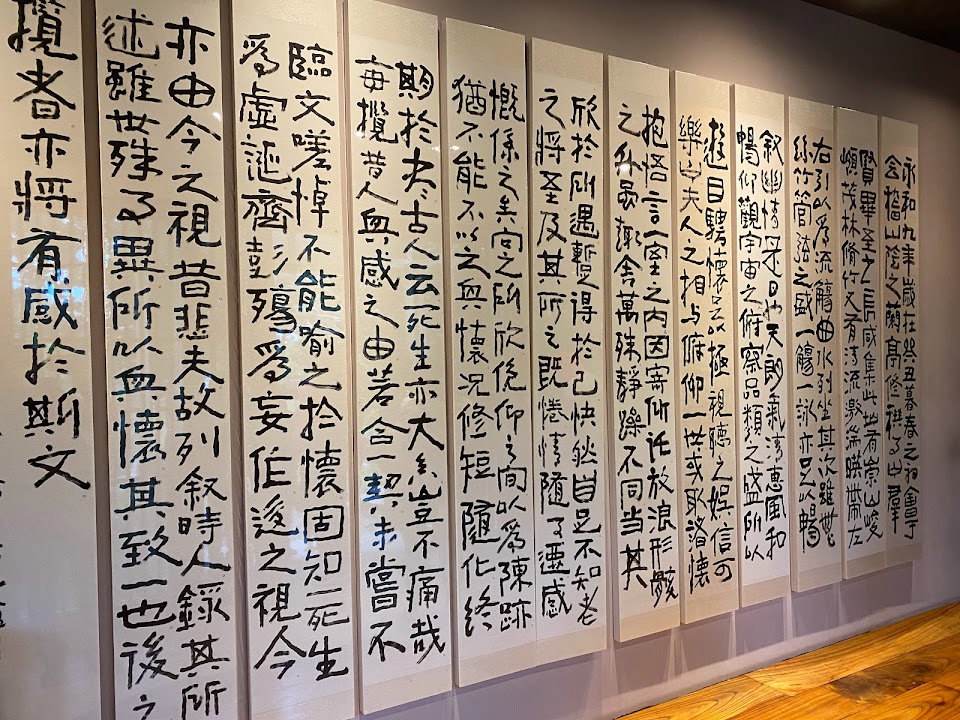 永和九年歲在癸丑暮春之初會于
會稽山陰之蘭亭修禊事也羣
賢畢至少長咸集此地有崇山峻
領茂林修竹又有清流激湍暎帶左
右引以為流觴曲水列坐其次雖無
絲竹管弦之盛一觴一詠亦足以暢
敘幽情是日也天朗氣清惠風和
暢仰觀宇宙之俯察品類之盛所以
遊目騁懷足以極視聽之娛信可
樂也夫人之相與俯仰一世或取諸懷
抱悟言一室之內因寄所託放浪形骸
之外雖趣舍萬殊靜躁不同當其
欣於所遇暫得於己快然自足不知老
之將至及其所之既惓情隨事遷感
慨係之矣向之所欣俛仰之間以為陳跡
猶不能不以之興懷況修短隨化終
期於盡古人云死生亦大矣豈不痛哉
每攬昔人興感之由若合一契未嘗不
臨文嗟悼不能喻之於懷固知一死生
為虛誕齊彭殤為妄作後之視今
亦由今之視昔悲夫故列敘時人錄其所
述雖世殊事異所以興懷其致一也後之
攬者亦將有感於斯文